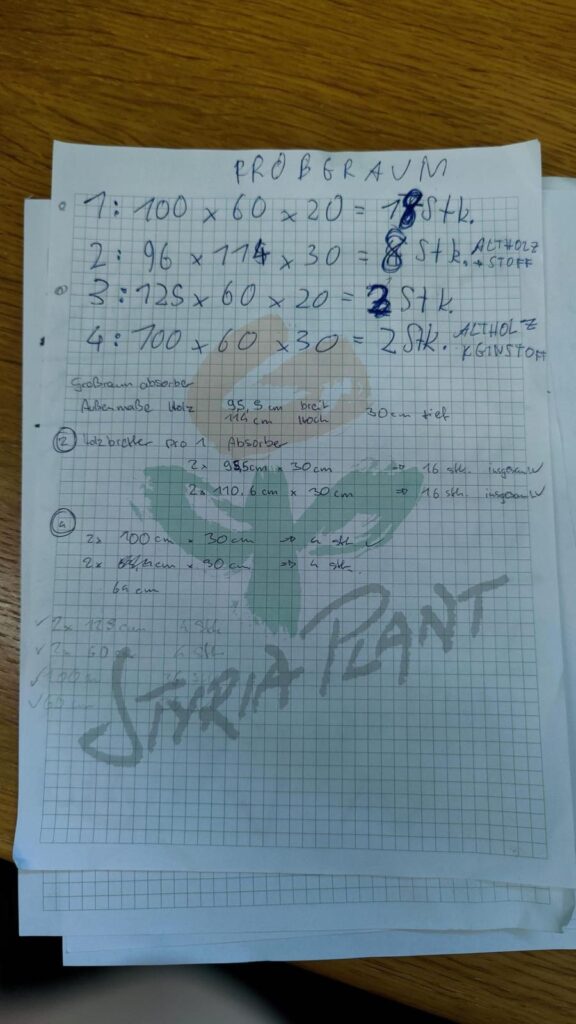 PROBERAUM
1: 100 x 60 x 20 = 18 Stk.
2: 96 x 114 x 30 = 8 Stk. ALTHOLZ
+ STOFF
3: 125 x 60 x 20 = 2 Stk.
4: 100 x 60 x 30 = 2 Stk. ALTHOLZ
KEIN STOFF
Großraum absorber
Außenmaße Holz 95,5 cm breit
114 cm Hoch 30cm tief
2 Holzbretter pro 1 Absorber
2x 95,5cm x 30cm => 16 stk. insgesamt
2x 110,6 cm x 30cm => 16 stk. insgesamt
4
2x 100cm x 30cm => 4 stk
2x x 30cm => 4 stk.
64 cm
✓ 2x 125 cm 4 Stk
✓ 2x 60 4 Stk
✓ 100
✓ 60
STYRIA PLANT